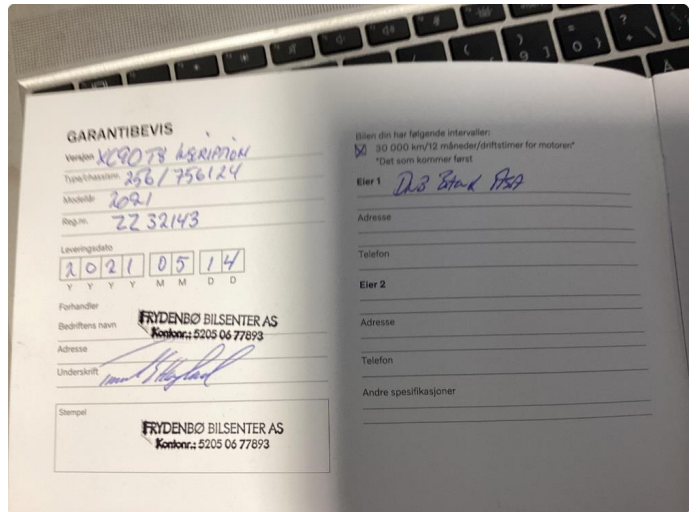 GARANTIBEVIS
Versjon XC90 T8 INSCRIPTION
Type/chassisnr. 256/756124
Modellår 2021
Reg.nr. ZZ 32143
Leveringsdato
2 0 2 1 0 5 1 4
Y Y Y Y M M D D
Forhandler
Bedriftens navn FRYDENBØ BILSENTER AS
Kontonr.: 5205 06 77893
Adresse
Underskrift
Stempel
FRYDENBØ BILSENTER AS
Kontonr.: 5205 06 77893
Bilen din har følgende intervaller:
30 000 km/12 måneder/driftstimer for motoren*
*Det som kommer først
Eier 1 DNB Bank ASA
Adresse
Telefon
Eier 2
Adresse
Telefon
Andre spesifikasjoner